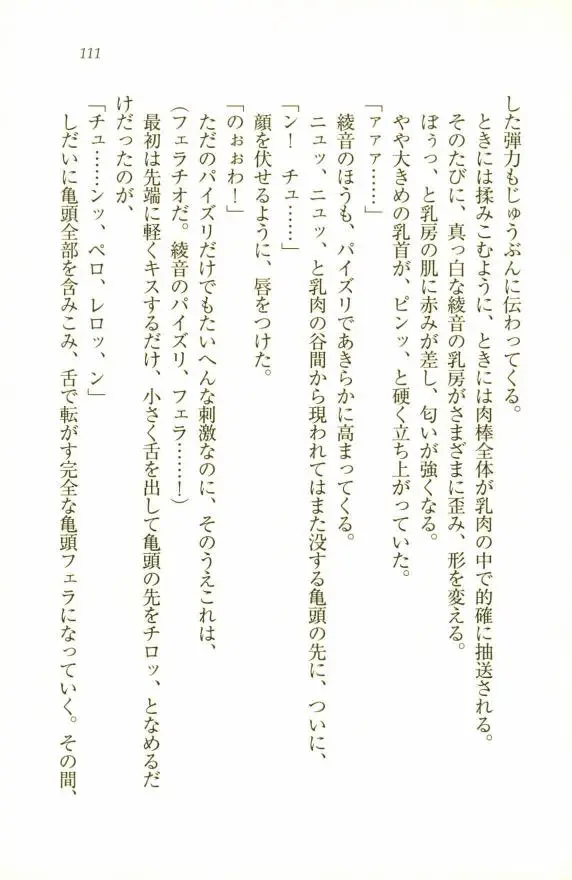 111
した弾力もじゅうぶんに伝わってくる。
ときには揉みこむように、ときには肉棒全体が乳肉の中で的確に抽送される。
そのたびに、真っ白な綾音の乳房がさまざまに歪み、形を変える。
ぼぅっ、と乳房の肌に赤みが差し、匂いが強くなる。
やや大きめの乳首が、ピンッ、と硬く立ち上がっていた。
「ァァァ……」
綾音のほうも、パイズリであきらかに高まってくる。
ニュッ、ニュッ、と乳肉の谷間から現われてはまた没する亀頭の先に、ついに、
「ン！　チュ……」
顔を伏せるように、唇をつけた。
「のぉぉわ！」
ただのパイズリだけでもたいへんな刺激なのに、そのうえこれは、
（フェラチオだ。綾音のパイズリ、フェラ……！）
最初は先端に軽くキスするだけ、小さく舌を出して亀頭の先をチロッ、となめるだ
けだったのが、
「チュ……ンッ、ペロ、レロッ、ン」
しだいに亀頭全部を含みこみ、舌で転がす完全な亀頭フェラになっていく。その間、